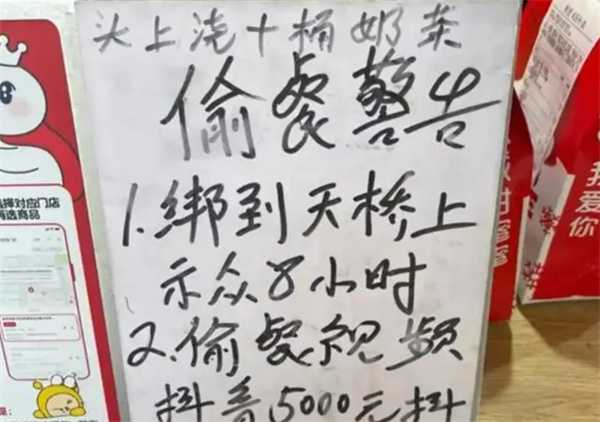 头上浇十桶奶茶
偷餐警告
1.绑到天桥上
示众8小时
2.偷餐视频
抖音5000元抖
择对应门店
商品
我
爱
你